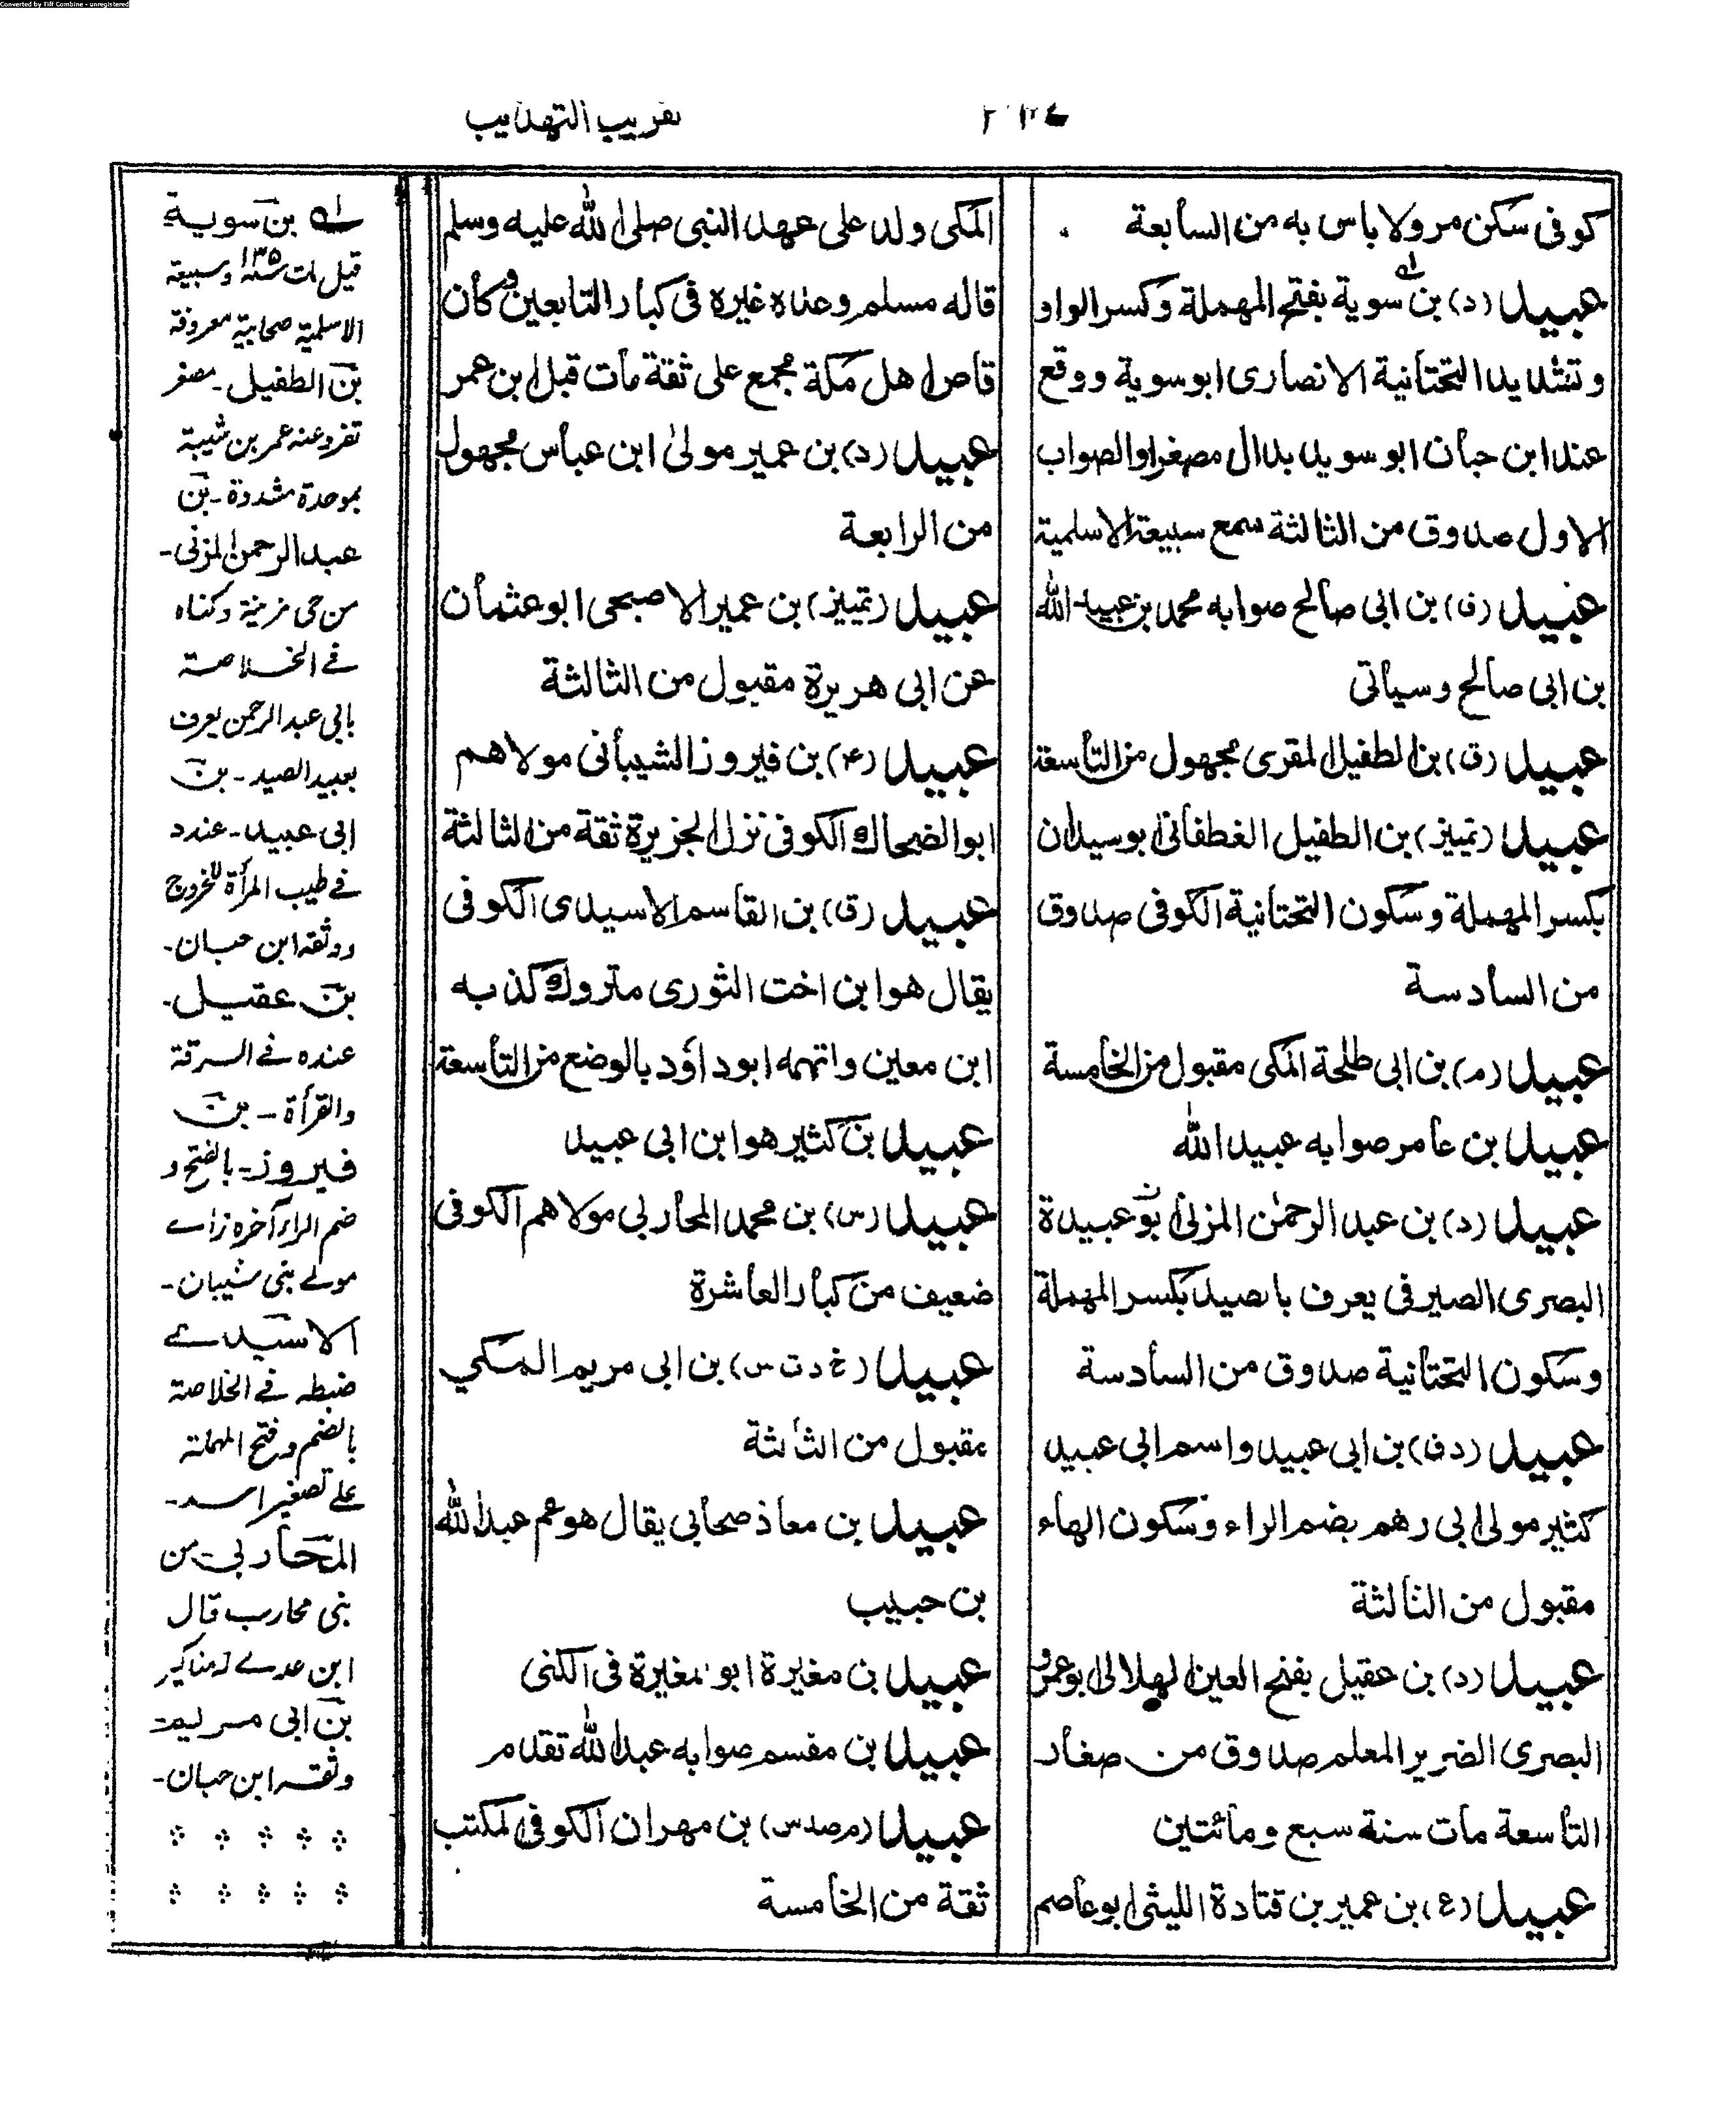 Converted by Tiff Combine - unregistered
تقريب التهذيب
كوفى سكن مرو لا باس به من السابعة
عبيد (د) بن سوية بفتح المهملة وكسر الواو
وتشديد التحتانية الانصارى ابو سوية ووقع
عند ابن حبان ابو سويد بدال مصغرا والصواب
الاول صدوق من الثالثة سمع سبيعة الاسلمية
عبيد (ق) بن ابى صالح صوابه محمد بن عبيد الله
بن ابى صالح وسياتى
عبيد (ق) بن الطفيل المقرى مجهول من التاسعة
عبيد (تمييز) بن الطفيل الغطفانى ابو سيدان
بكسر المهملة وسكون التحتانية الكوفى صدوق
من السادسة
عبيد (م) بن ابى طلحة المكى مقبول من الخامسة
عبيد بن عامر صوابه عبيد الله
عبيد (د) بن عبد الرحمن المزنى ابو عبيدة
البصرى الصيرفى يعرف بالصيد بكسر المهملة
وسكون التحتانية صدوق من السادسة
عبيد (د ق) بن ابى عبيد واسم ابى عبيد
كثير مولى ابى رهم بضم الراء وسكون الهاء
مقبول من الثالثة
عبيد (د) بن عقيل بفتح العين الهلالى ابو عمرو
البصرى الضرير المعلم صدوق من صغار
التاسعة مات سنة سبع ومائتين
عبيد (ع) بن عمير بن قتادة الليثى ابو عاصم
المكى ولد على عهد النبى صلى الله عليه وسلم
قاله مسلم وعده غيره فى كبار التابعين وكان
قاص اهل مكة مجمع على ثقة مات قبل ابن عمر
عبيد (د) بن عمير مولى ابن عباس مجهول
من الرابعة
عبيد (تمييز) بن عمير الاصبحى ابو عثمان
عن ابى هريرة مقبول من الثالثة
عبيد (۴) بن فيروز الشيبانى مولاهم
ابو الضحاك الكوفى نزل الجزيرة ثقة من الثالثة
عبيد (ق) بن القاسم الاسيدى الكوفى
يقال هو ابن اخت الثورى متروك كذبه
ابن معين واتهمه ابو داؤد بالوضع من التاسعة
عبيد بن كثير هو ابن ابى عبيد
عبيد (س) بن محمد المحاربى مولاهم الكوفى
ضعيف من كبار العاشرة
عبيد (خ د ت س) بن ابى مريم المكي
مقبول من الثالثة
عبيد بن معاذ صحابى يقال هو عم عبد الله
بن حبيب
عبيد بن مغيرة ابو المغيرة فى الكنى
عبيد بن مقسم صوابه عبد الله تقدم
عبيد (م صد س) بن مهران الكوفى المكتب
ثقة من الخامسة
له بن سوية
قيل مات سنة ١٣٥ وسبيعة
الاسلمية صحابية معروفة
بن الطفيل - مصغر
تفرد عنه عمر بن شيبة
بموحدة مشددة - بن
عبد الرحمن المزنى -
من حى مزينة وكناه
فے الخلاصة
بابى عبد الرحمن يعرف
بعبيد الصيد - بن
ابى عبيد - عند د
فے طيب المرأة للخروج
ووثقه ابن حبان -
بن عقيل -
عنده فے السرقة
والقرأة - بن
فيروز - بالفتح و
ضم الراء آخره زاے
مولے بنى شيبان -
الاسيدے
ضبطه فے الخلاصة
بالضم وفتح المهملة
علے تصغير اسد -
المحاربى من
بنى محارب قال
ابن عدے له مناكير
بن ابى مريم
وثقه ابن حبان -